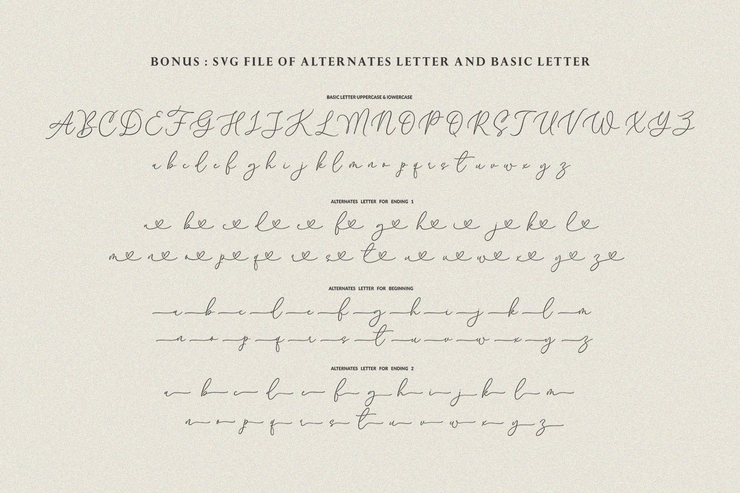 BONUS : SVG FILE OF ALTERNATES LETTER AND BASIC LETTER
BASIC LETTER UPPERCASE & lOWERCASE
A B C D E F G H I J K L M N O P Q R S T U V W X Y Z
a b c d e f g h i j k l m n o p q r s t u v w x y z
ALTERNATES LETTER FOR ENDING 1
a b c d e f g h i j k l
m n o p q r s t u v w x y z
ALTERNATES LETTER FOR BEGINNING
a b c d e f g h i j k l m
n o p q r s t u v w x y z
ALTERNATES LETTER FOR ENDING 2
a b c d e f g h i j k l m
n o p q r s t u v w x y z